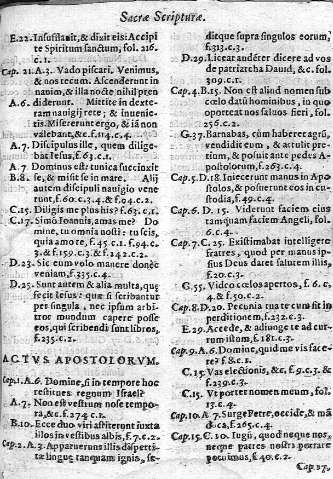 Sacræ Scripturæ.
E.22. Insufflauit, & dixit eis: Accipi
te Spiritum sanctum, fol. 216.
c.1.
Cap. 21. A.3. Vado piscari. Venimus,
& nos tecum. Ascenderunt in
nauim, & illa nocte nihil pren
A.6. diderunt. Mittite in dexte-
ram nauigij rete; & inuenie-
tis. Misererunt ergo, & iã non
valebant, &c. f.114.c.4.
A.7. Discipulus ille, quem dilige-
bat Iesus, f.63.c.1.
A.7 Dominus est: tunica succinxit
B.8. se, & misit se in mare. Alij
autem discipuli nauigio vene
runt, f.60.c.3.4. & f.94.c.2.
C.15. Diligis me plus his? f.63.c.1.
C.17. Simo Ioannis, amas me? Do
mine, tu omnia nosti: tu scis,
quia amo te, f.45.c.1. f.94.c.
3. & f.159.c.3. & f.242.c.2.
D.23. Sic eum volo manere donec
veniam, f.335.c.4.
D.25. Sunt autem & alia multa, quę
fecit Iesus: quæ si scribantur
per singula, nec ipsum arbi-
tror mundum capere posse
eos, qui scribendi sunt libros,
f.235.c.2.
ACTVS APOSTOLORVM.
Cap.1. A.6. Domine, si in tempore hoc
restitues regnum Israel?
A.7. Non est vestrum nosse tempo
ra, &c. f.274.c.1.
B.10. Ecce duo viri astiterunt iuxta
illos in vestibus albis, f.7.c.2.
Cap. 2. A.3. Apparuerunt illis disperti-
tæ linguę tanquam ignis, se-
ditque supra singulos eorum,
f.313.c.3.
D.29. Liceat audéter dicere ad vos
de patriarcha Dauid, &c. fol.
309.c.1.
Cap.4. B.15. Non est aliud nomen sub
cœlo datũ hominibus, in quo
oporteat nos saluos fieri, fol.
256.c.2.
G.37. Barnabas, cùm haberet agrũ,
vendidit eum, & attulit pre-
tium, & posuit ante pedes A-
postolorum, f.263.c.4.
Cap.5. D.18. Iniecerunt manus in Apo
stolos, & posuerunt eos in cu-
stodia, f.49.c.4.
Cap.6. D. 15. Viderunt faciem eius
tamquam faciem Angeli, fol.
6.c.4.
Cap.7. C.25. Existimabat intelligere
fratres, quod per manus ip-
sius Deus daret salutem illis,
f.20.c.3.
G.55. Video cœlos apertos, f.6. c.
4. & f.50.c.2.
Cap.8. D.20. Pecunia tua tecum sit in
perditionem, f.232.c.3.
E.29. Accede, & adiunge te ad cur-
rum istum, f.181.c.3.
Cap.9. A.6. Domine, quid me vis face-
re? f.8.c.1.
C.15. Vas electionis, &c. f.9.c.3. &
f.239.c.3.
C.15. Vt portet nomen meum, fol.
13.c.4.
Cap.10. A.7. Surge Petre, occide, & mã
duca, f.265.c.4.
Cap.15. C.10. Iugũ, quod neque nos,
neque patres nostri portare
potuimus, f.40.c.2.
Cap.17.